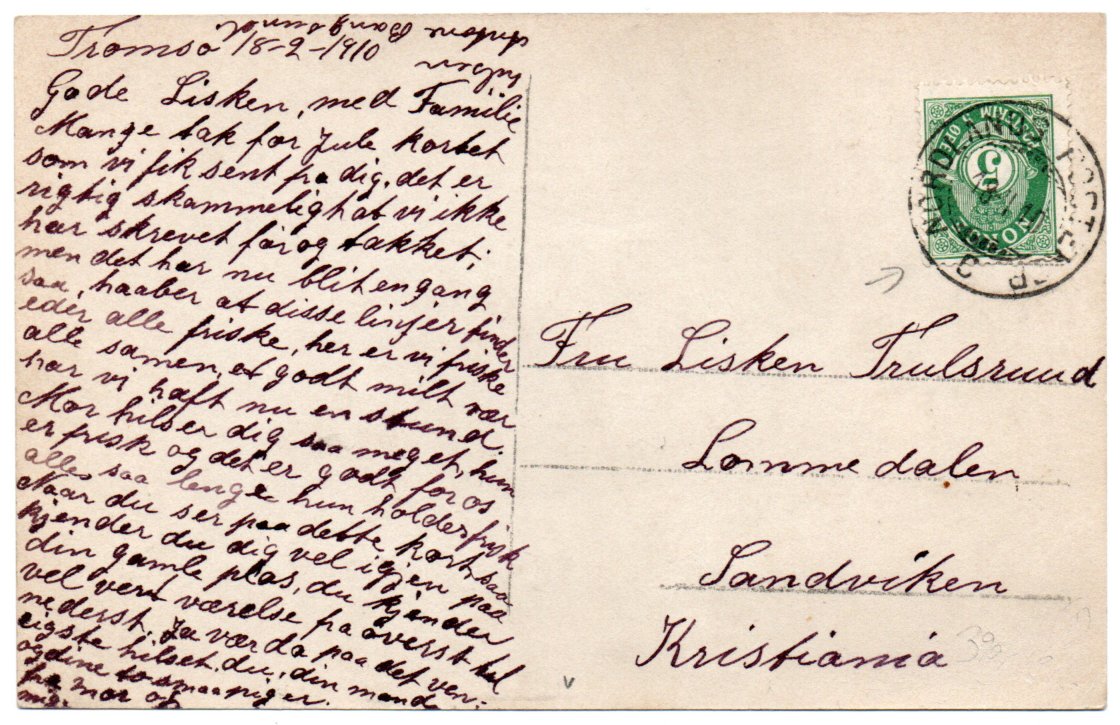 Tromsø 18-2-1910
Gode Lisken, med Familie
Mange tak for Jule kortet
som vi fik sent fra dig, det er
rigtig skammelig at vi ikke
har skrevet før og takket;
men det har nu blit engang
saa, haaber at disse linjer finder
eder alle friske, her er vi friske
alle samen, et godt milt vær
har vi haft nu en stund.
Mor hilser dig saa meget, hun
er frisk og det er godt for os
alle saa lenge hun holder frisk
Naar du ser paa dette kort saa
kjender du dig vel igjen paa
din gamle plas, du kjender
vel vert værelse fra øverst til
nederst. Ja vær da paa det ven-
ligste hilset du, din mand
og dine to smaapiger.
fra mor og
mig.
NORDLANDS POSTEXP
C
5
NORGE
Fru Lisken Trulsruud
Lommedalen
Sandviken
Kristiania